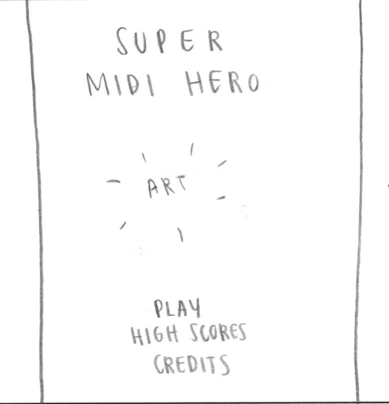 SUPER
MIDI HERO
ART
PLAY
HIGH SCORES
CREDITS